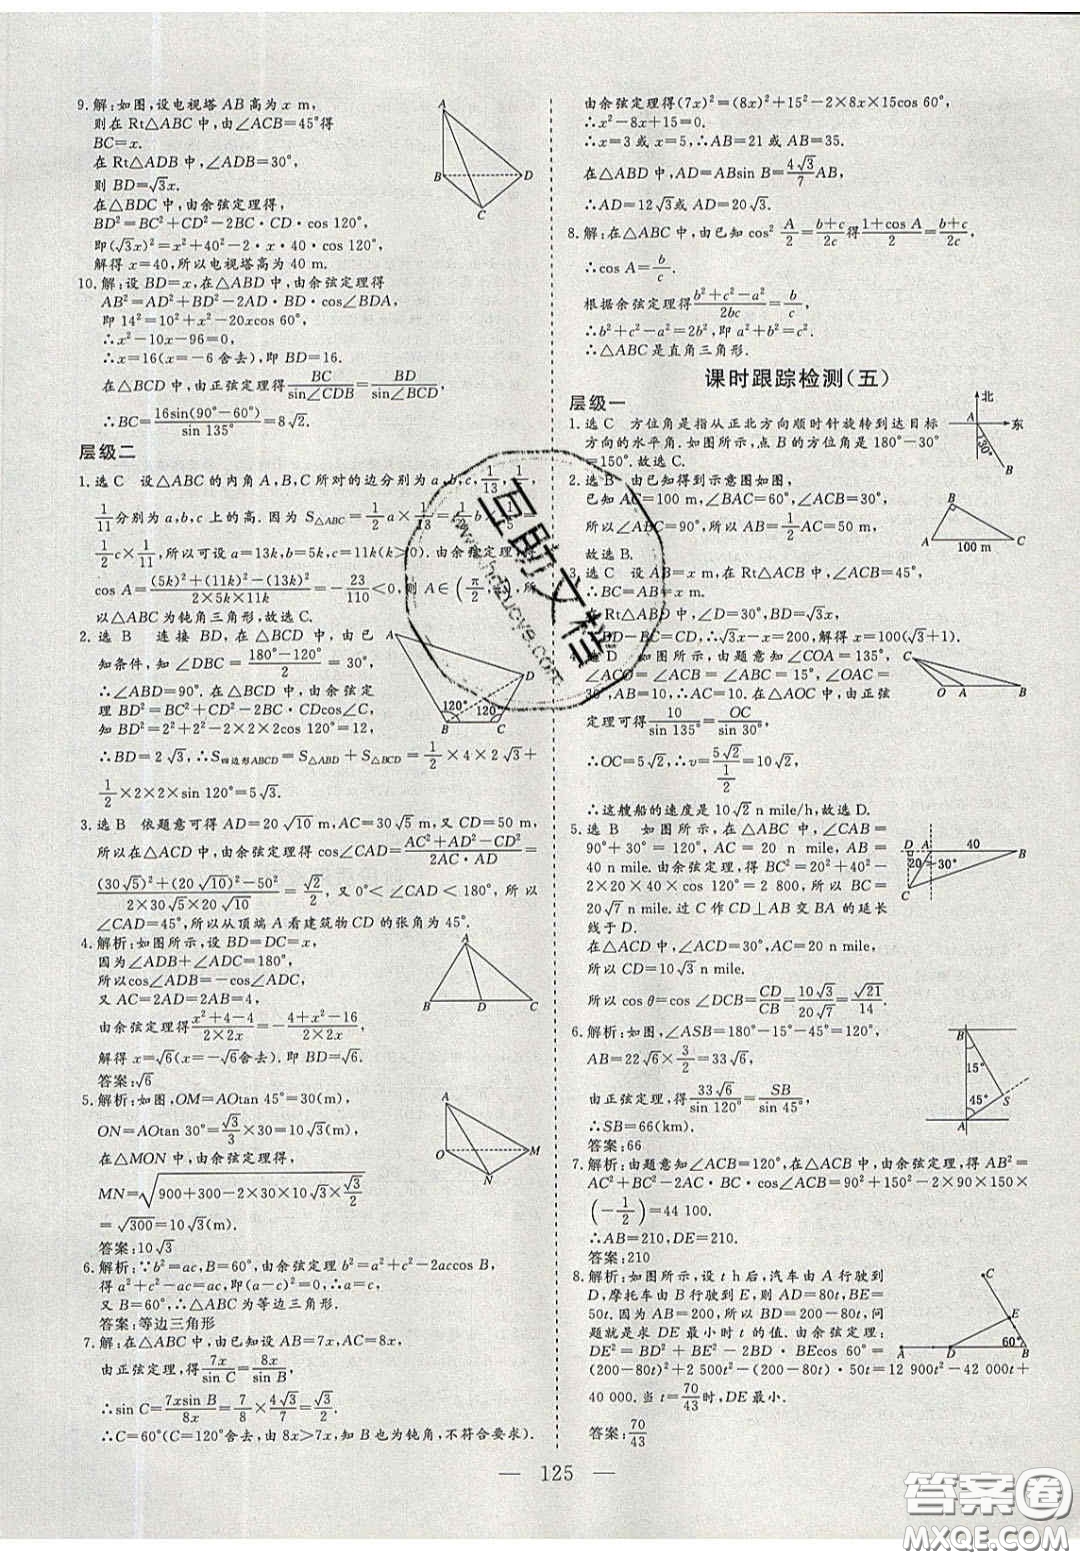 9.解:如图,设电视塔 AB 高为 x m,
则在 Rt△ABC 中,由∠ACB=45°得
BC=x.
在 Rt△ADB 中,∠ADB=30°,
则 BD=√3x.
在△BDC 中,由余弦定理得,
BD²=BC²+CD²-2BC·CD·cos 120°,
即(√3x)²=x²+40²-2·x·40·cos 120°,
解得 x=40,所以电视塔高为 40 m.
10.解:设 BD=x,在△ABD 中,由余弦定理得
AB²=AD²+BD²-2AD·BD·cos∠BDA,
即 14²=10²+x²-20xcos 60°,
∴x²-10x-96=0,
∴x=16(x=-6 舍去),即 BD=16.
在△BCD 中,由正弦定理得 BC/sin∠CDB=BD/sin∠BCD,
∴BC=16sin(90°-60°)/sin 135°=8√2.
层级二
1.选 C 设△ABC 的内角 A,B,C 所对的边分别为 a,b,c, 1/13, 1/5,
1/11 分别为 a,b,c 上的高.因为 S△ABC=1/2 a×1/13=1/2 b×1/5=
1/2 c×1/11,所以可设 a=13k,b=5k,c=11k(k>0).由余弦定理,
cos A=(5k)²+(11k)²-(13k)²/2×5k×11k=-23/110<0,则 A∈(π/2,π),所
以△ABC 为钝角三角形,故选 C.
2.选 B 连接 BD,在△BCD 中,由已
知条件,知∠DBC=180°-120°/2=30°,
∴∠ABD=90°.在△BCD 中,由余弦定
理 BD²=BC²+CD²-2BC·CDcos∠C,
知 BD²=2²+2²-2×2×2cos 120°=12,
∴BD=2√3,∴S四边形ABCD=S△ABD+S△BCD=1/2×4×2√3+
1/2×2×2×sin 120°=5√3.
A
B
C
D
120°
120°
3.选 B 依题意可得 AD=20√10 m,AC=30√5 m,又 CD=50 m,
所以在△ACD 中,由余弦定理得 cos∠CAD=AC²+AD²-CD²/2AC·AD=
(30√5)²+(20√10)²-50²/2×30√5×20√10=√2/2,又 0°<∠CAD<180°,所以
∠CAD=45°,所以从顶端 A 看建筑物 CD 的张角为 45°.
4.解析:如图所示,设 BD=DC=x,
因为∠ADB+∠ADC=180°,
所以 cos∠ADB=-cos∠ADC,
又 AC=2AD=2AB=4,
由余弦定理得 x²+4-4/2×2x=-4+x²-16/2×2x,
解得 x=√6(x=-√6舍去).即 BD=√6.
答案:√6
5.解析:如图,OM=AOtan 45°=30(m),
ON=AOtan 30°=√3/3×30=10√3(m),
在△MON 中,由余弦定理得,
MN=√900+300-2×30×10√3×√3/2
=√300=10√3(m).
答案:10√3
6.解析:∵b²=ac,B=60°,由余弦定理 b²=a²+c²-2accos B,
得 a²+c²-ac=ac,即(a-c)²=0,∴a=c,
又 B=60°,∴△ABC 为等边三角形.
答案:等边三角形
7.解:在△ABC 中,由已知设 AB=7x,AC=8x,
由正弦定理,得 7x/sin C=8x/sin B,
∴sin C=7xsin B/8x=7/8×4√3/7=√3/2.
∴C=60°(C=120°舍去,由 8x>7x,知 B 也为钝角,不符合要求).
由余弦定理得(7x)²=(8x)²+15²-2×8x×15cos 60°,
∴x²-8x+15=0.
∴x=3 或 x=5,∴AB=21 或 AB=35.
在△ABD 中,AD=ABsin B=4√3/7 AB,
∴AD=12√3或 AD=20√3.
8.解:在△ABC 中,由已知 cos² A/2=b+c/2c得1+cos A/2=b+c/2c,
∴cos A=b/c.
根据余弦定理得b²+c²-a²/2bc=b/c.
∴b²+c²-a²=2b²,即 a²+b²=c².
∴△ABC 是直角三角形.
课时跟踪检测(五)
层级一
1.选 C 方位角是指从正北方向顺时针旋转到达目标
方向的水平角.如图所示,点 B 的方位角是 180°-30°
=150°.故选 C.
北
东
A
30°
B
2.选 B 由已知得到示意图如图,
已知 AC=100 m,∠BAC=60°,∠ACB=30°,
所以∠ABC=90°,所以 AB=1/2 AC=50 m,
故选 B.
B
A
100 m
C
3.选 C 设 AB=x m,在 Rt△ACB 中,∠ACB=45°,
∴BC=AB=x m.
在 Rt△ABD 中,∠D=30°,∴BD=√3x.
∵BD-BC=CD,∴√3x-x=200,解得 x=100(√3+1).
4.选 D 如图所示,由题意知∠COA=135°,
∠ACO=∠ACB-∠BCO=15°,∠OAC=
30°,AO=10.在△AOC 中,由正弦
定理可得 10/sin 15°=OC/sin 30°,
∴OC=5√2/1/2,∴v=5√2/1/2=10√2,
∴这艘船的速度是 10√2 n mile/h,故选 D.
5.选 B 如图所示,在△ABC 中,∠CAB=
90°+30°=120°,AC=20 n mile,AB=
40 n mile.由余弦定理,得 BC²=20²+40²-
2×20×40×cos 120°=2 800,所以 BC=
20√7 n mile.过 C 作 CD⊥AB 交 BA 的延长
线于 D.
在△ACD 中,∠ACD=30°,AC=20 n mile,
所以 CD=10√3 n mile.
所以 cos θ=cos∠DCB=CD/CB=10√3/20√7=√21/14.
6.解析:如图,∠ASB=180°-15°-45°=120°,
AB=22√6×3/2=33√6,
由正弦定理,得 33√6/sin 120°=SB/sin 45°,
∴SB=66(km).
答案:66
7.解析:由题意知∠ACB=120°,在△ACB 中,由余弦定理,得 AB²=
AC²+BC²-2AC·BC·cos∠ACB=90²+150²-2×90×150×
(-1/2)=44 100.
∴AB=210,DE=210.
答案:210
8.解析:如图所示,设 t h后,汽车由 A 行驶到
D,摩托车由 B 行驶到 E,则 AD=80t,BE=
50t.因为 AB=200,所以 BD=200-80t,问
题就是求 DE 最小时 t 的值.由余弦定理得,
DE²=BD²+BE²-2BD·BEcos 60°=
(200-80t)²+2 500t²-(200-80t)·50t=12 900t²-42 000t+
40 000.当 t=70/43时,DE 最小.
答案:70/43
— 125 —
互助文档
www.hdzucye.com
答案圈
MXQE.COM